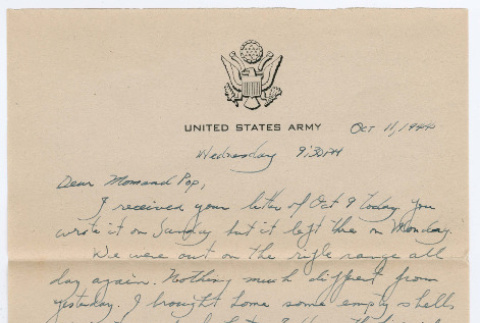 UNITED STATES ARMY Oct 11, 1944
Wednesday 9:30 PM
Dear Mom and Pop,
I received your letter of Oct 9 today you
wrote it on Sunday but it left the on Monday.
We were out on the rifle range all
day again. Nothing much different from
yesterday. I brought home some empty shells